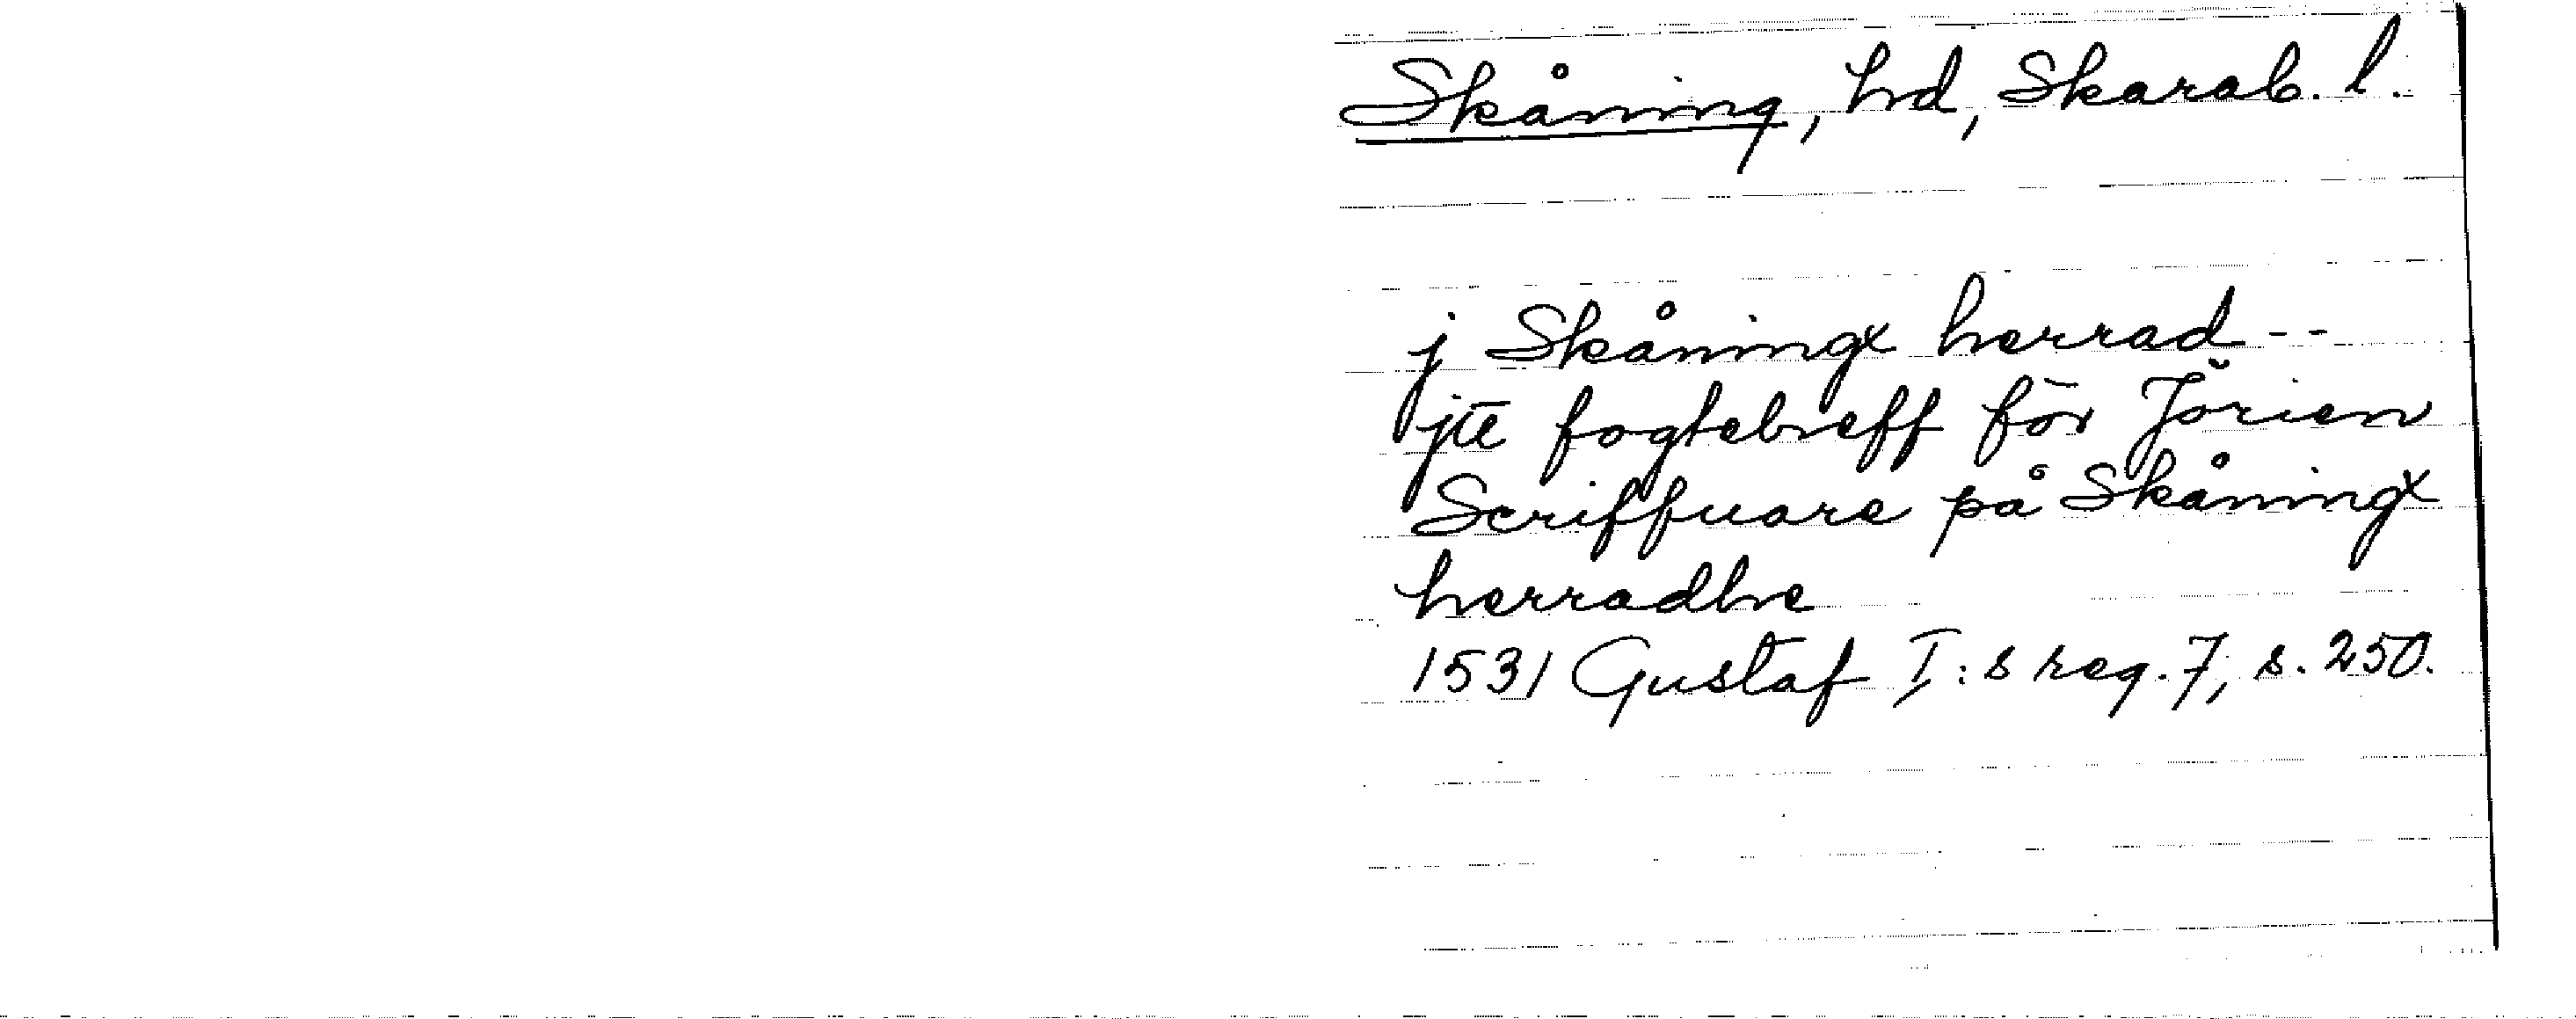 Skåning, hd, Skarab. l.
j Skåningx herrad --
jtē fogtebreff för Jörien
Scriffuare på Skåningx
herradhe
1531 Gustaf I:s reg. 7, s. 250.